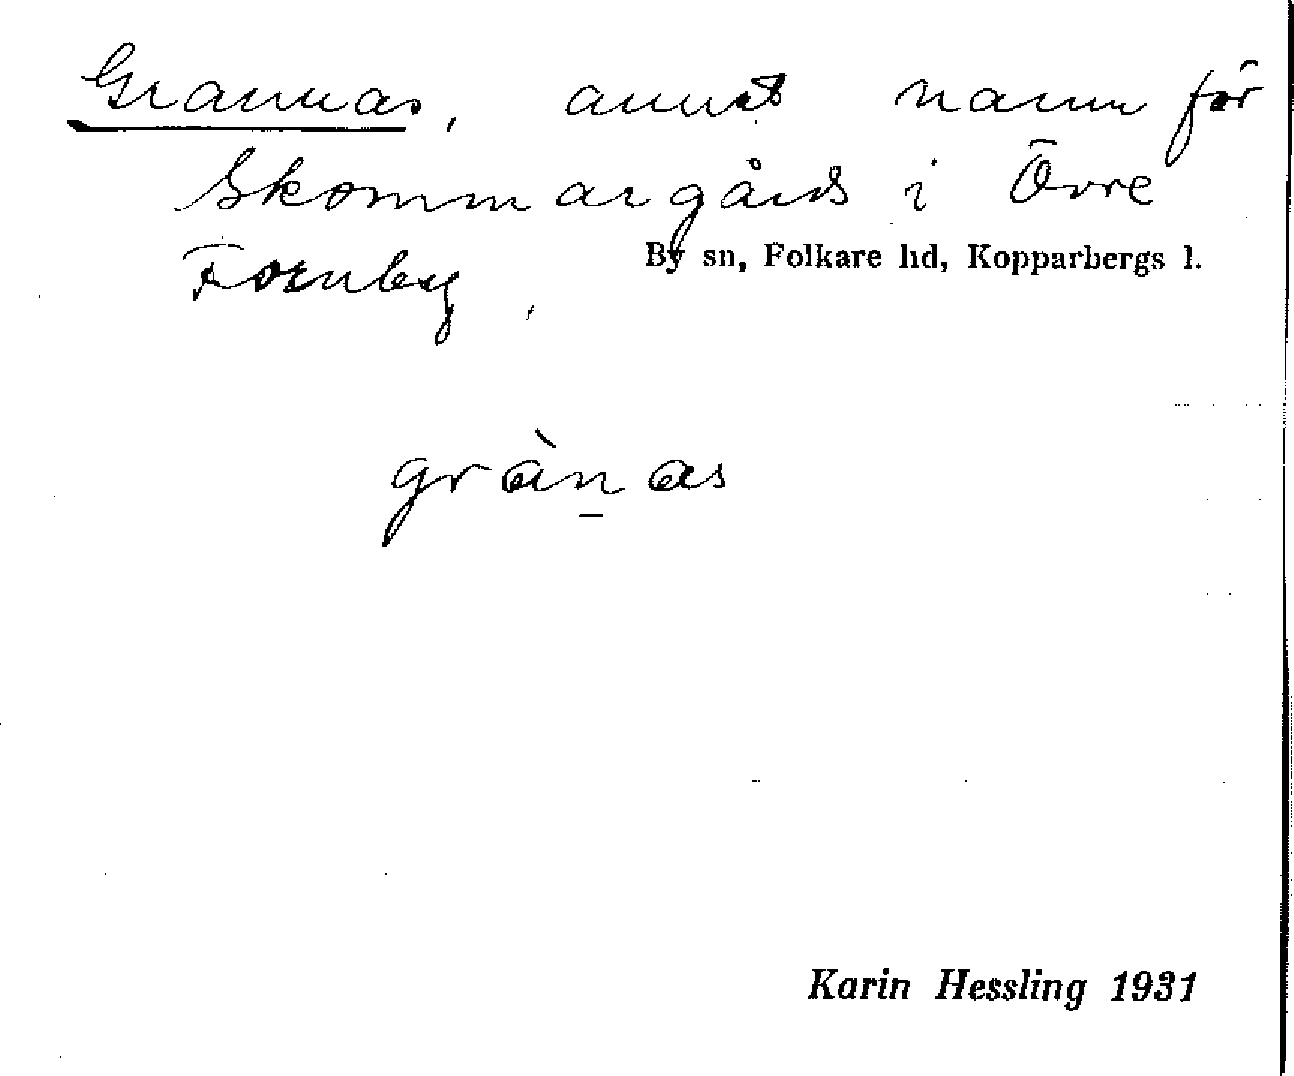 Grannas, annat namn för
Skommargårds i Övre
Fornby.
By sn, Folkare hd, Kopparbergs l.
grànas
Karin Hessling 1931